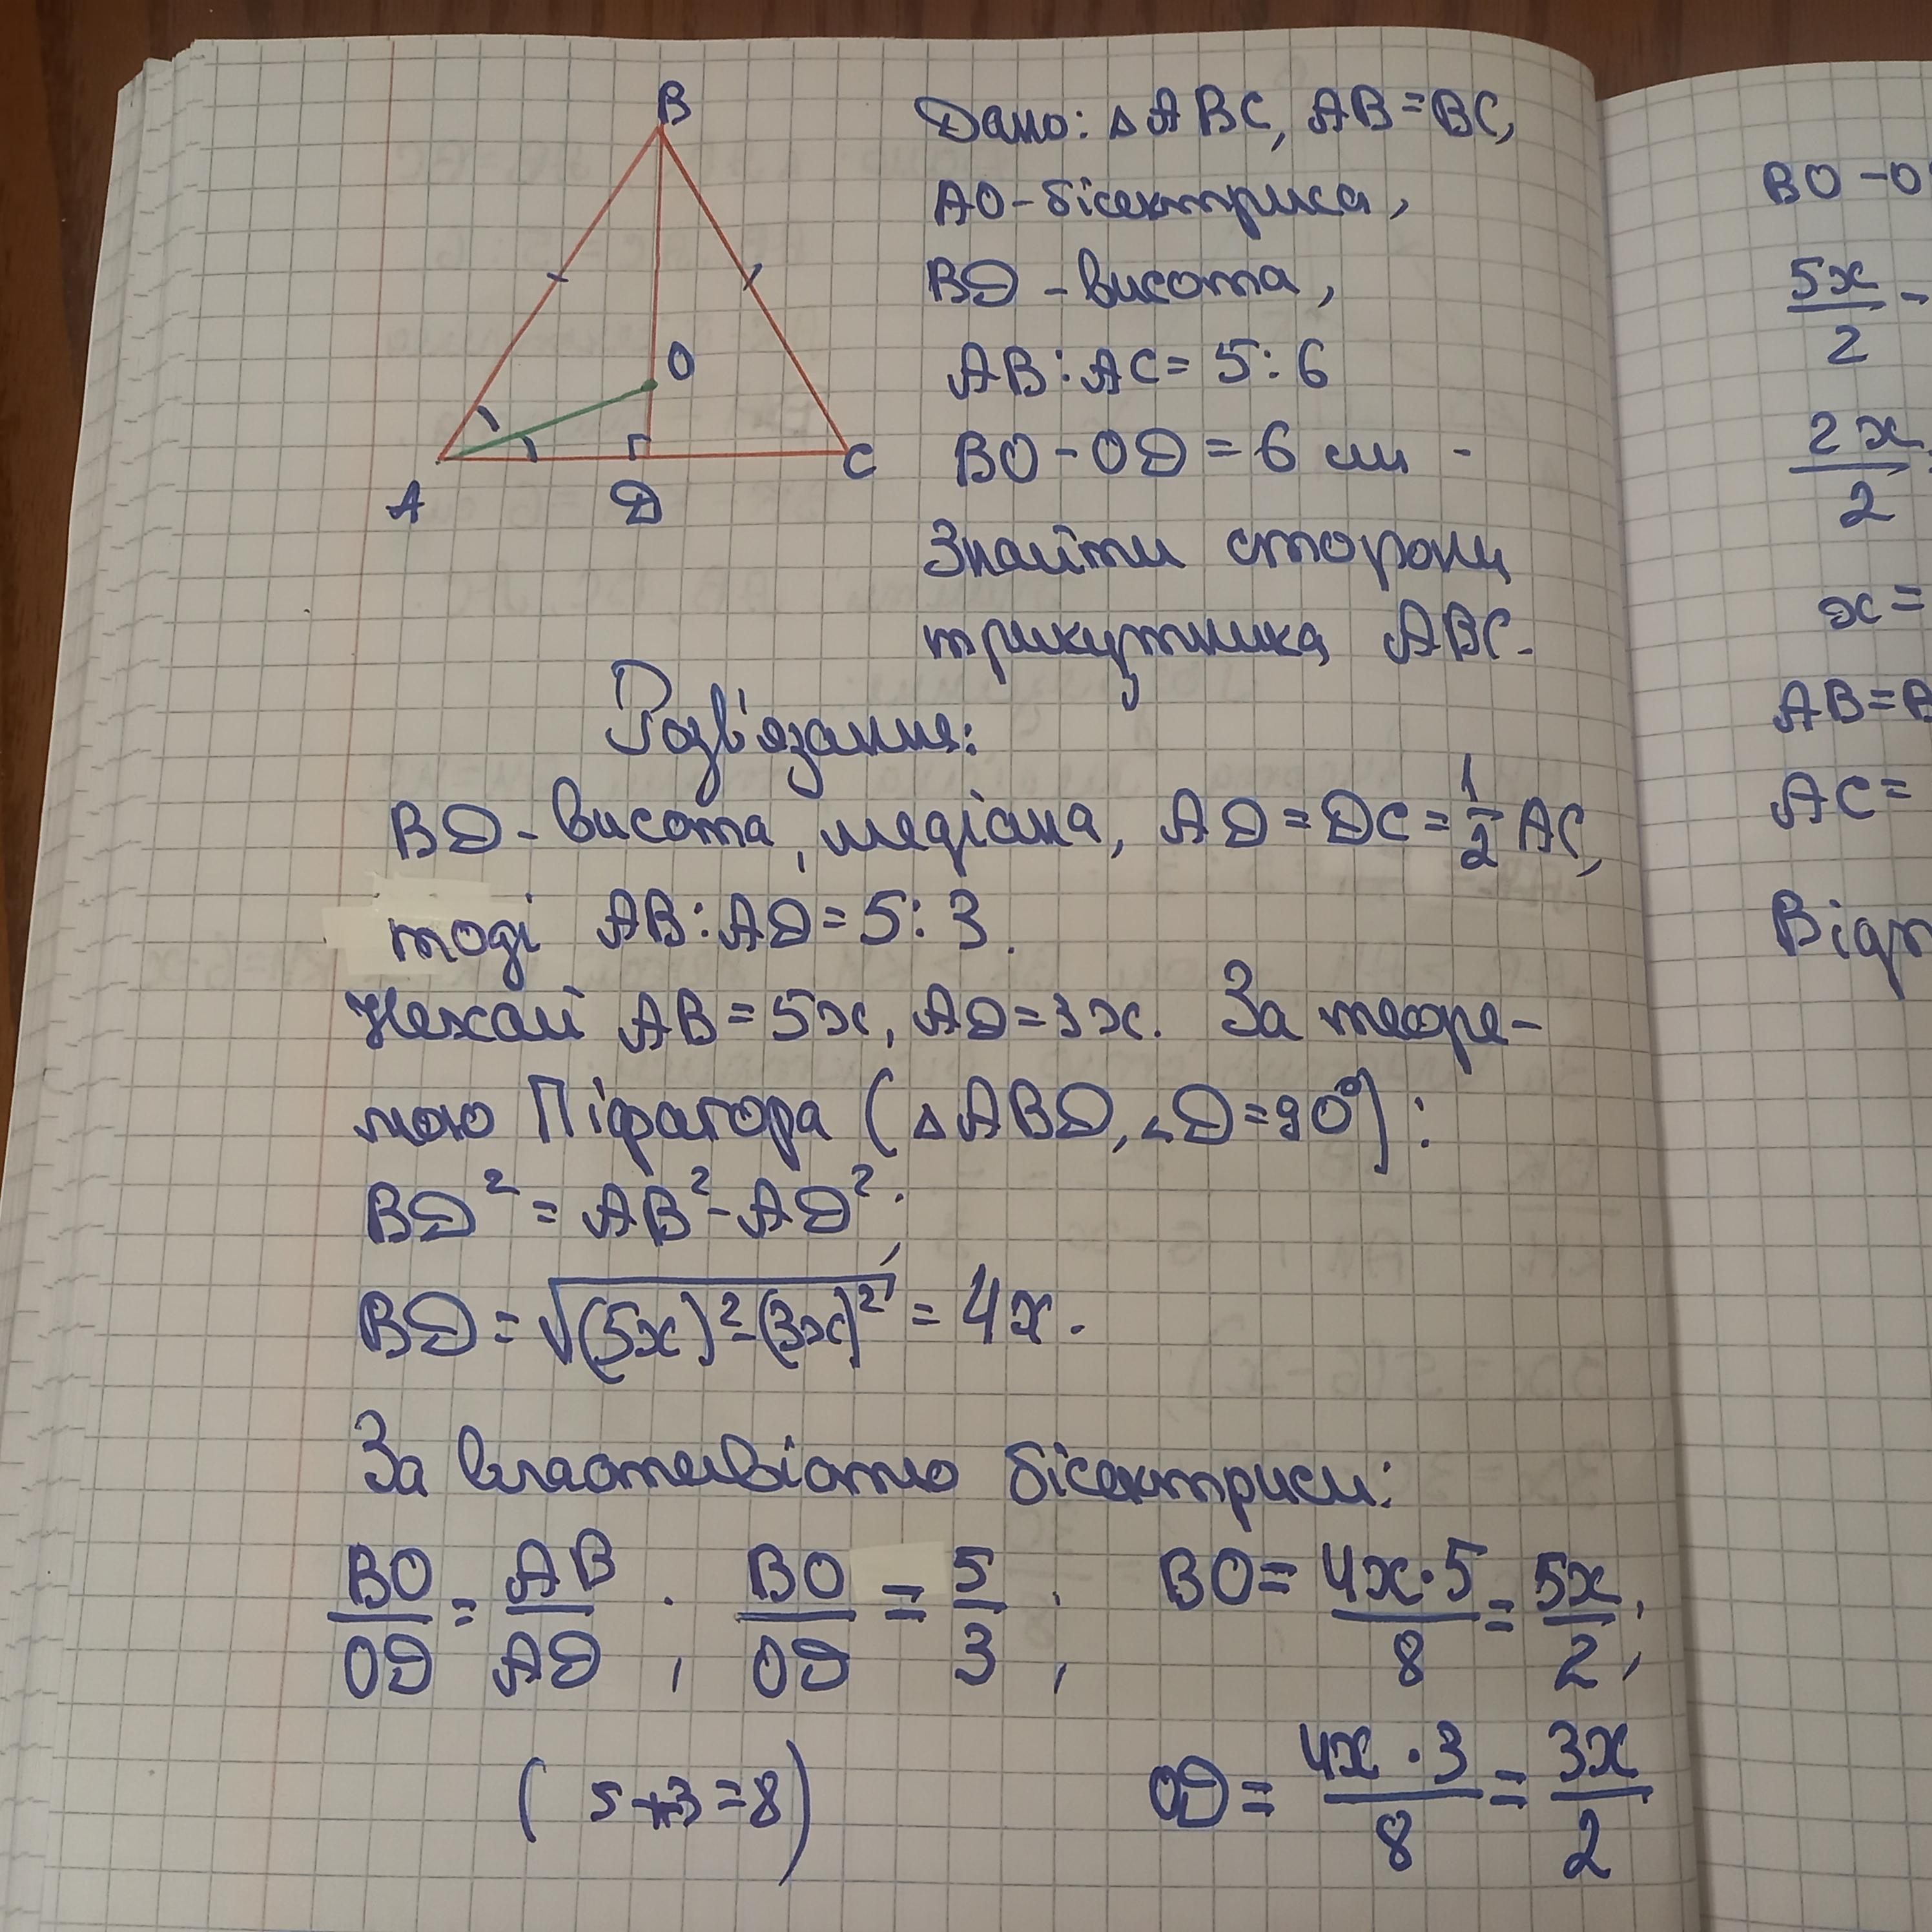 B
O
A
D
C
Дано: △ABC, AB=BC,
AO-бісектриса,
BD-висота,
AB:AC=5:6
BO-OD=6 см
Знайти сторони
трикутника ABC.
Розв'язання:
BD-висота, медіана, AD=DC=1/2 AC,
тоді AB:AD=5:3.
Нехай AB=5x, AD=3x. За теоре-
мою Піфагора (△ABD, ∠D=90°):
BD²=AB²-AD²;
BD=√((5x)²-(3x)²)=4x.
За властивістю бісектриси:
BO/OD=AB/AD; BO/OD=5/3; BO=4x·5/8=5x/2;
(5+3=8) OD=4x·3/8=3x/2
BO-O
5x/2 -
2x/2
x=
AB=B
AC=
Відп